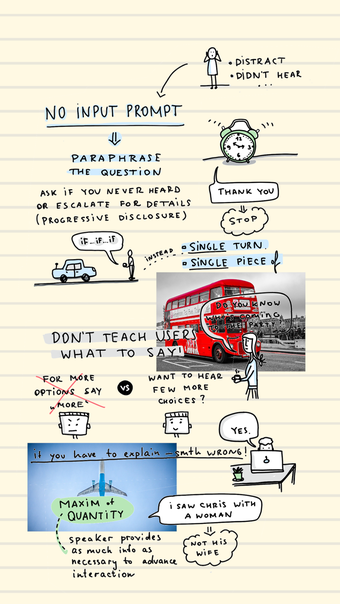 • DISTRACT
• DIDN'T HEAR
...
NO INPUT PROMPT
PARAPHRASE
THE QUESTION
ASK IF YOU NEVER HEARD
OR ESCALATE FOR DETAILS
(PROGRESSIVE DISCLOSURE)
THANK YOU
STOP
iF...iF...iF
INSTEAD
• SINGLE TURN
• SINGLE PIECE of
DO YOU KNOW
COMING
TO THE PARTY?
DON'T TEACH USERS
WHAT TO SAY!
FOR MORE
OPTIONS SAY
"MORE"
VS
WANT TO HEAR
FEW MORE
CHOICES?
YES.
if you have to explain – smth WRONG!
MAXIM of
QUANTITY
I SAW CHRIS WITH
A WOMAN
NOT HIS
WIFE
speaker provides
as much info as
necessary to advance
interaction